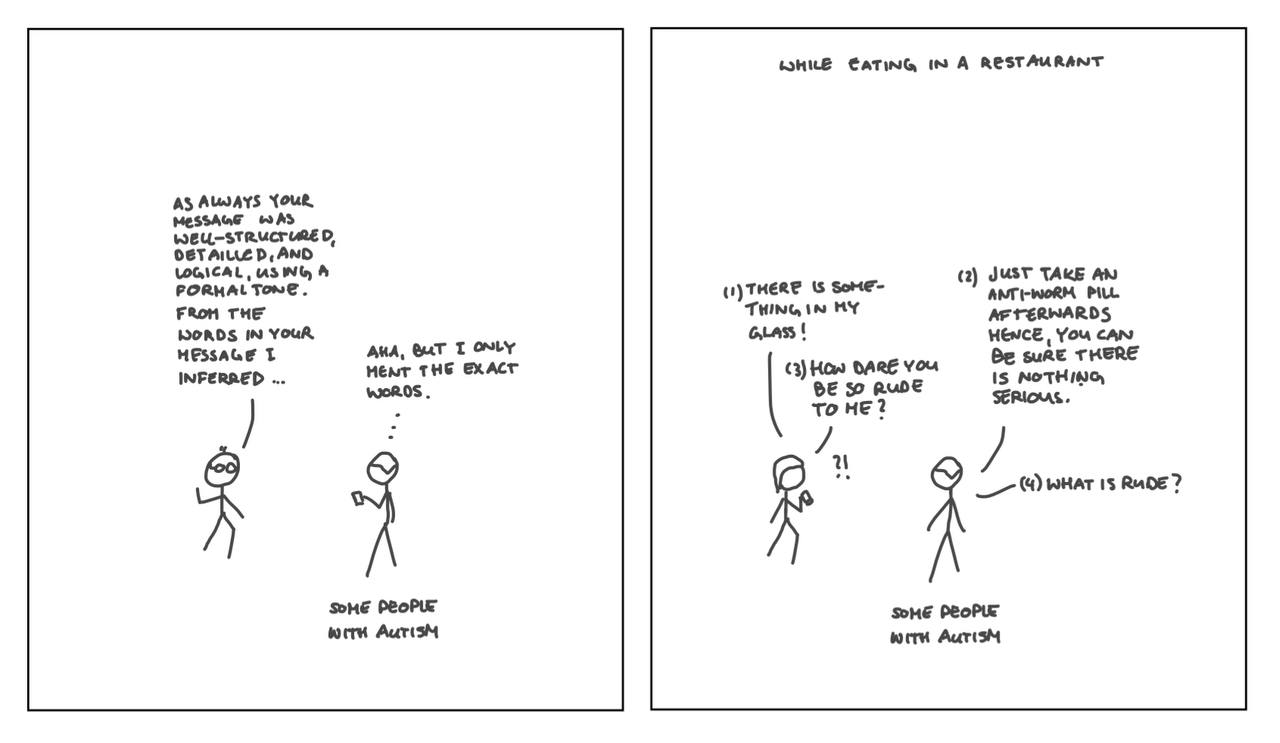 AS ALWAYS YOUR
MESSAGE WAS
WELL-STRUCTURED,
DETAILLED, AND
LOGICAL, USING A
FORMAL TONE.
FROM THE
WORDS IN YOUR
MESSAGE I
INFERRED ...
AHA, BUT I ONLY
MENT THE EXACT
WORDS.
SOME PEOPLE
WITH AUTISM
WHILE EATING IN A RESTAURANT
(1) THERE IS SOME-
THING IN MY
GLASS!
(2) JUST TAKE AN
ANTI-WORM PILL
AFTERWARDS
HENCE, YOU CAN
BE SURE THERE
IS NOTHING
SERIOUS.
(3) HOW DARE YOU
BE SO RUDE
TO ME?
?!
(4) WHAT IS RUDE?
SOME PEOPLE
WITH AUTISM